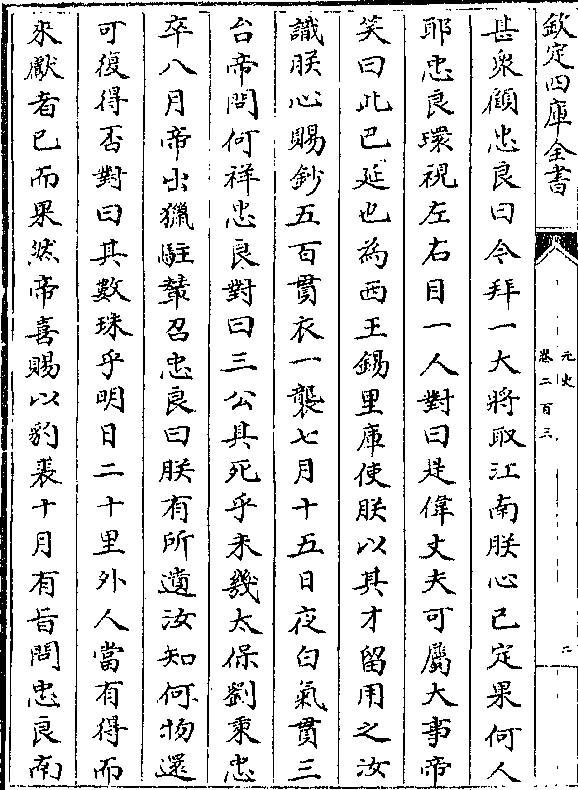 欽定四庫全書
元史
卷二百三
二
甚衆顧忠良曰今拜一大將取江南朕心已定果何人
耶忠良環視左右目一人對曰是偉丈夫可屬大事帝
笑曰此巴延也為西王錫里庫使朕以其才留用之汝
識朕心賜鈔五百貫衣一襲七月十五日夜白氣貫三
台帝問何祥忠良對曰三公其死乎未幾太保劉秉忠
卒八月帝出獵駐輦召忠良曰朕有所遺汝知何物還
可復得否對曰其數珠乎明日二十里外人當有得而
來獻者已而果然帝喜賜以豹裘十月有旨問忠良南